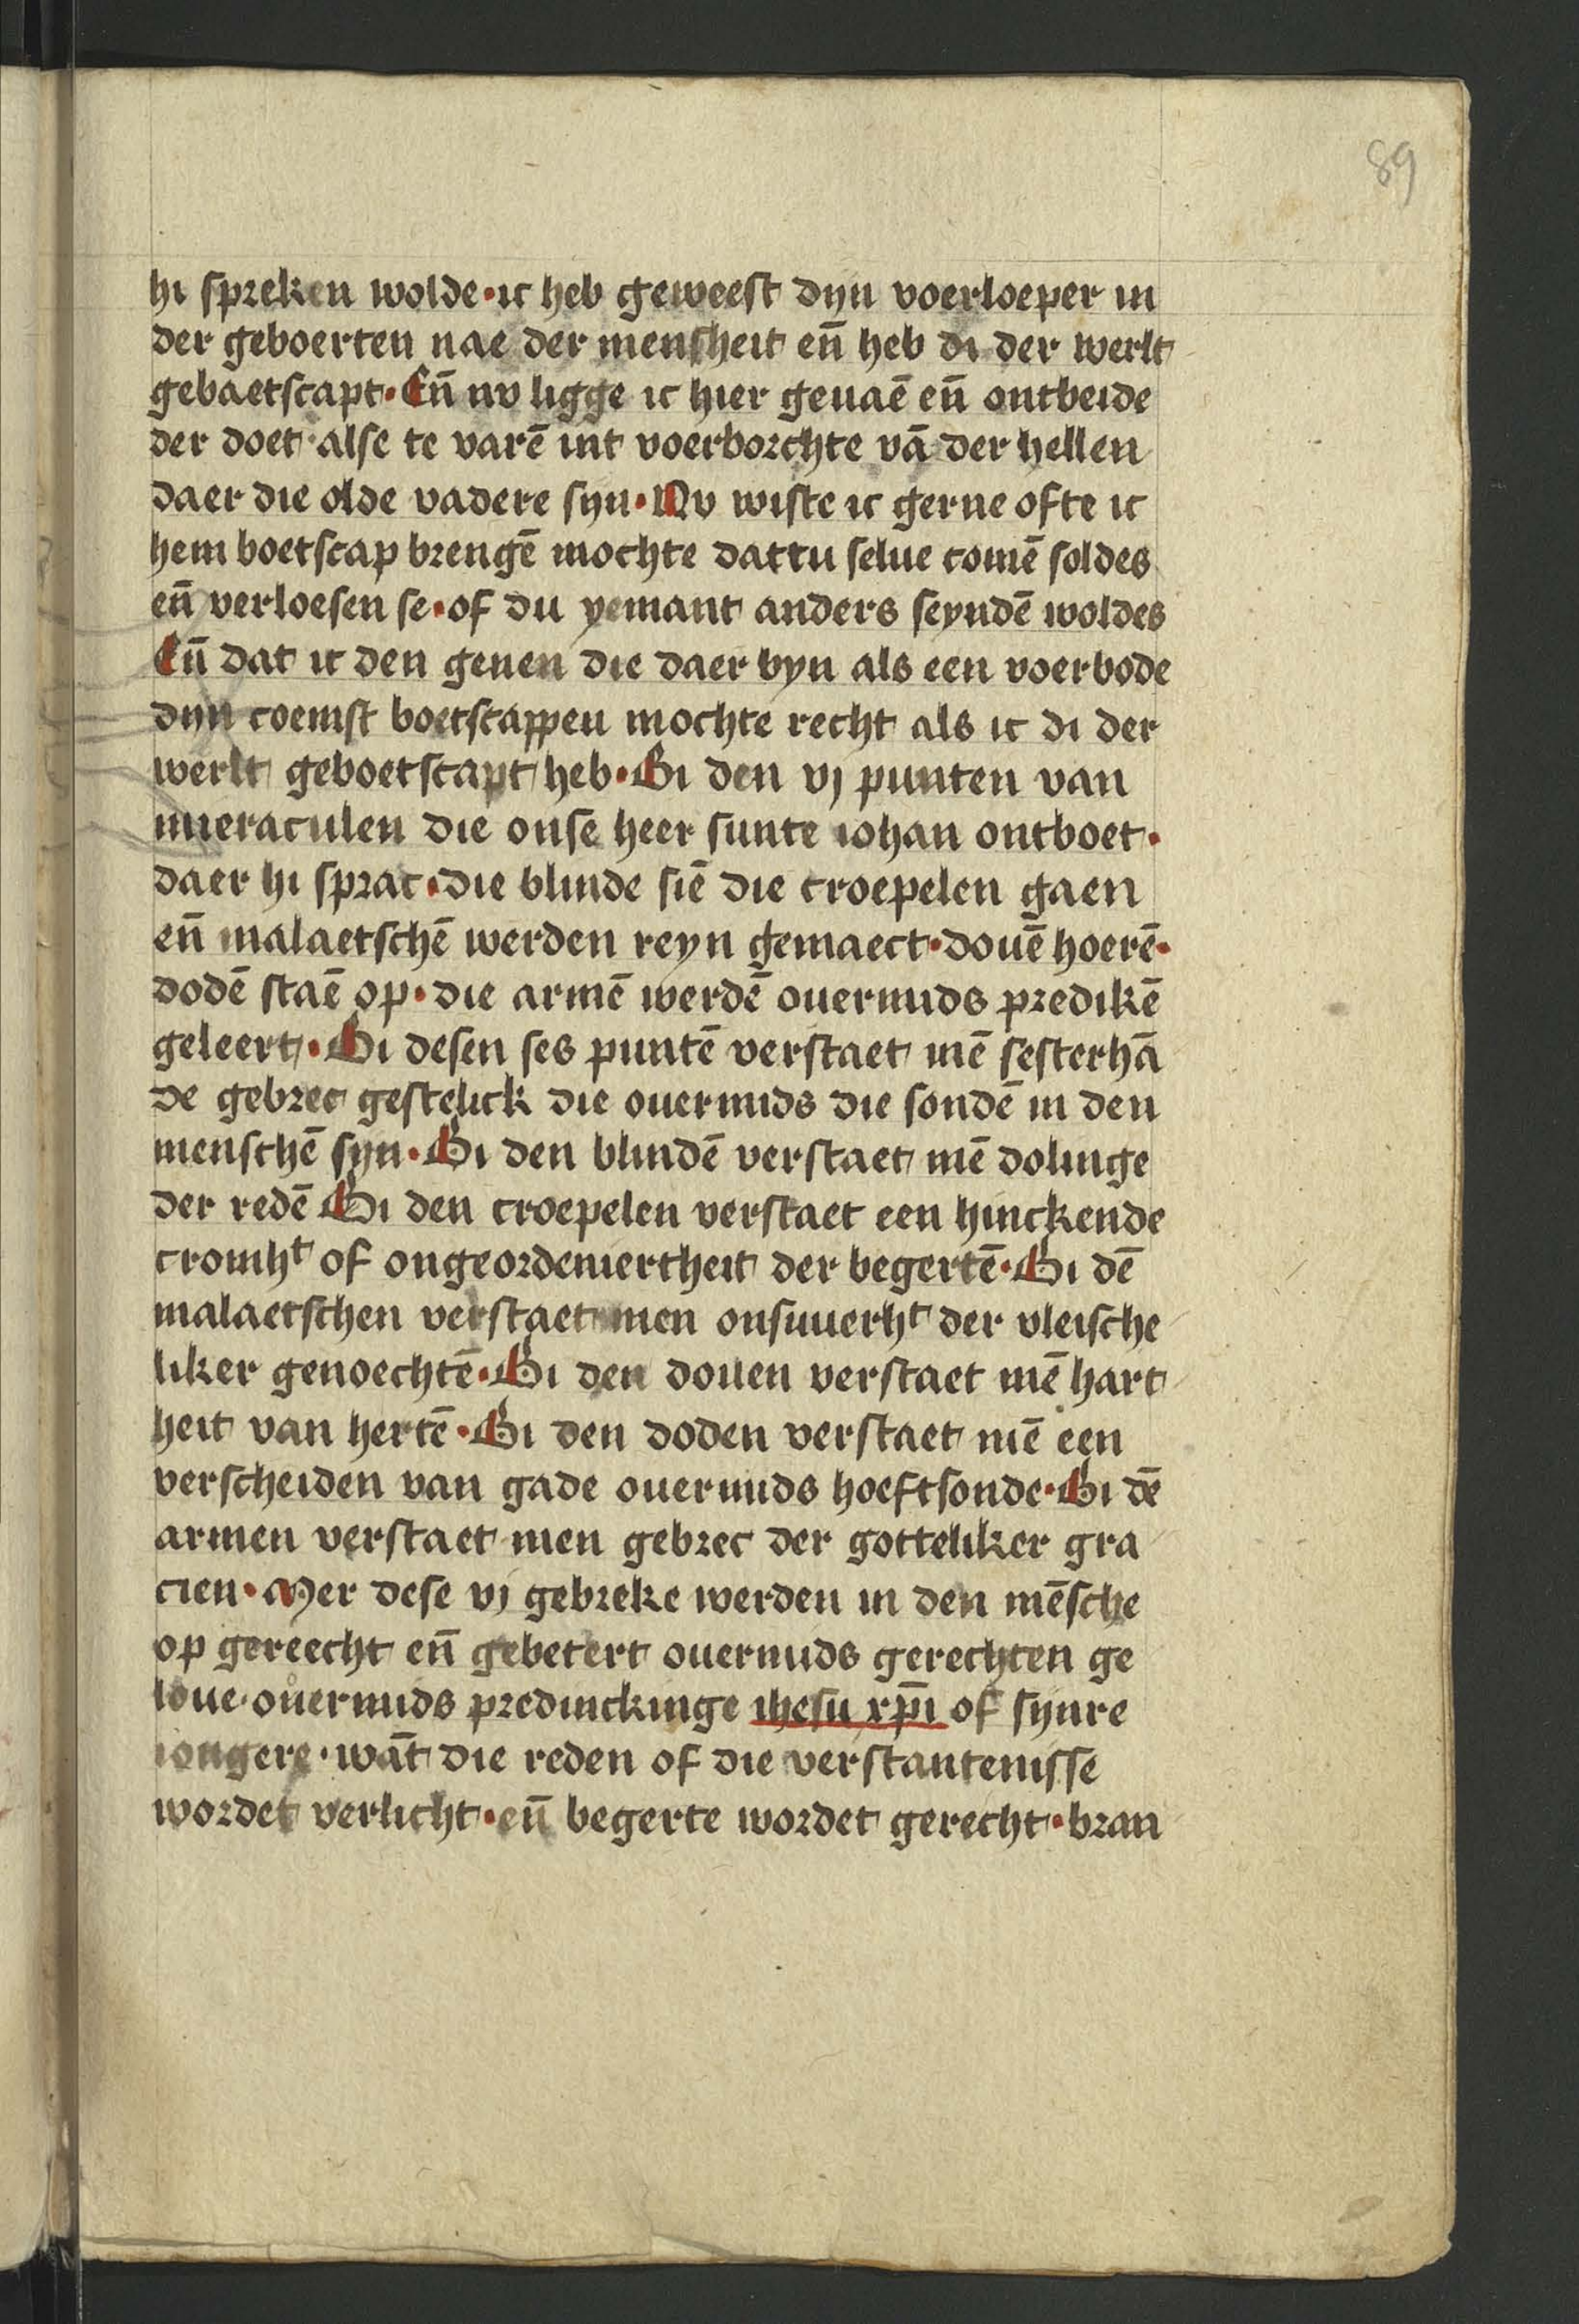 89
hi spreken wolde · ic heb geweest dyn voerloeper in
der geboerten nae der mensheit en̄ heb di der werlt
gebaetscapt · En̄ nv ligge ic hier geuaē en̄ ontbeide
der doet · alse te varē int voerborchte vā der hellen
daer die olde vadere syn · Nv wiste ic gerne ofte ic
hem boetscap brengē mochte dattu selue comē soldes
en̄ verloesen se · of du yemant anders seyndē woldes
En̄ dat ic den genen die daer byn als een voerbode
dyn coemst boetscappen mochte recht als ic di der
werlt geboetscapt heb · Bi den vj punten van
mieraculen die onse heer sunte iohan ontboet ·
daer hi sprac · die blinde siē die croepelen gaen
en̄ malaetschē werden reyn gemaect · douē hoerē ·
dodē staē op · die armē werdē ouermids predikē
geleert · Bi desen ses puntē verstaet mē sesterhā
de gebrec gestelick die ouermids die sondē in den
menschē syn · Bi den blindē verstaet mē dolinge
der redē Bi den croepelen verstaet een hinckende
cromhᵗ of ongeordeniertheit der begertē · Bi dē
malaetschen verstaet men onsuuerhᵗ der vleische
liker genoechtē · Bi den douen verstaet mē hart
heit van hertē · Bi den doden verstaet mē een
verscheiden van gade ouermids hoeftsonde · Bi dē
armen verstaet men gebrec der gotteliker gra
cien · Mer dese vj gebreke werden in den mēsche
op gereecht en̄ gebetert ouermids gerechten ge
loue · ouermids predinckinge ihesu xp̄i of synre
iongere · wāt die reden of die verstantenisse
wordet verlicht · en̄ begerte wordet gerecht · bran